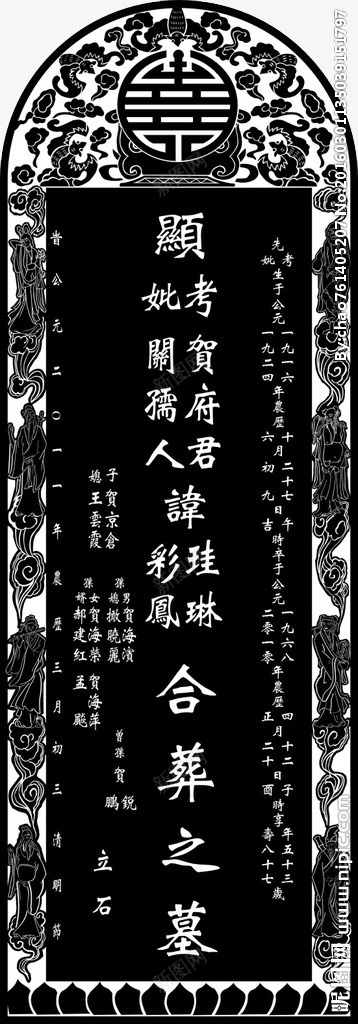 先考妣生于公元一九一六一九二四年農歷十六月二十七初九日午吉時卒于公元一九六八二零一零年農歷四正月十二二十日子酉時享年五十三壽八十七歲
顯
考賀府君
妣關孺人
諱
珪琳
彩鳳
合葬之墓
子賀京倉
媳王雲霞
孫男賀海濱
媳撖曉麗
孫女賀海榮 賀海萍
婿郝建紅 孟飈
曾孫賀
銳
鵬
立石
旹公元二〇一一年農歷三月初三清明節
By:chao761405207 No:20160301135039151797
昵图网 www.nipic.com